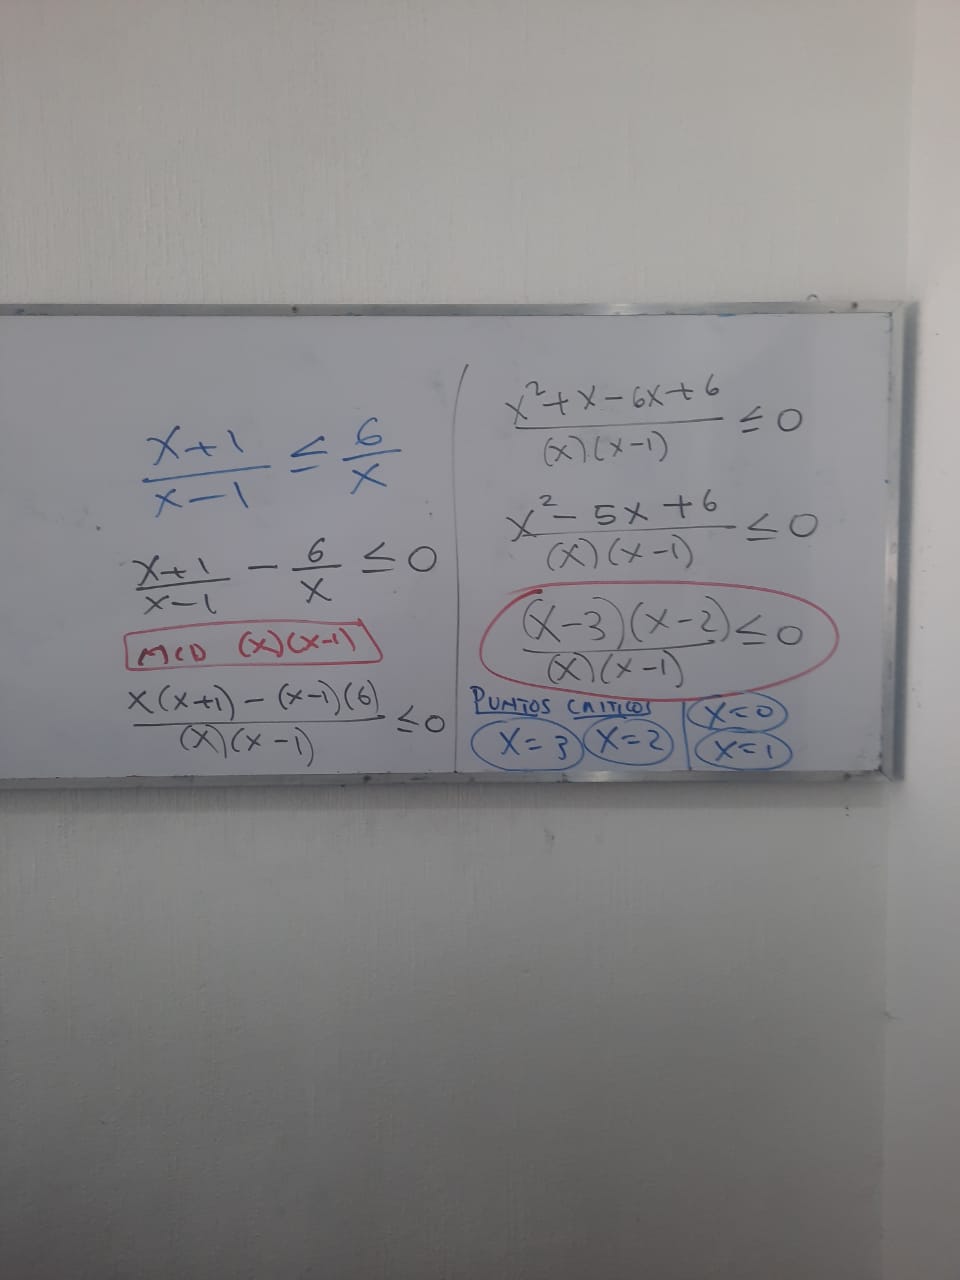 x+1/x-1 ≤ 6/x
x+1/x-1 - 6/x ≤ 0
MCD (x)(x-1)
x(x+1) - (x-1)(6)/(x)(x-1) ≤ 0
x²+x-6x+6/(x)(x-1) ≤ 0
x²-5x+6/(x)(x-1) ≤ 0
(x-3)(x-2)/(x)(x-1) ≤ 0
PUNTOS CRITICOS
x=3 x=2 x=0
x=1